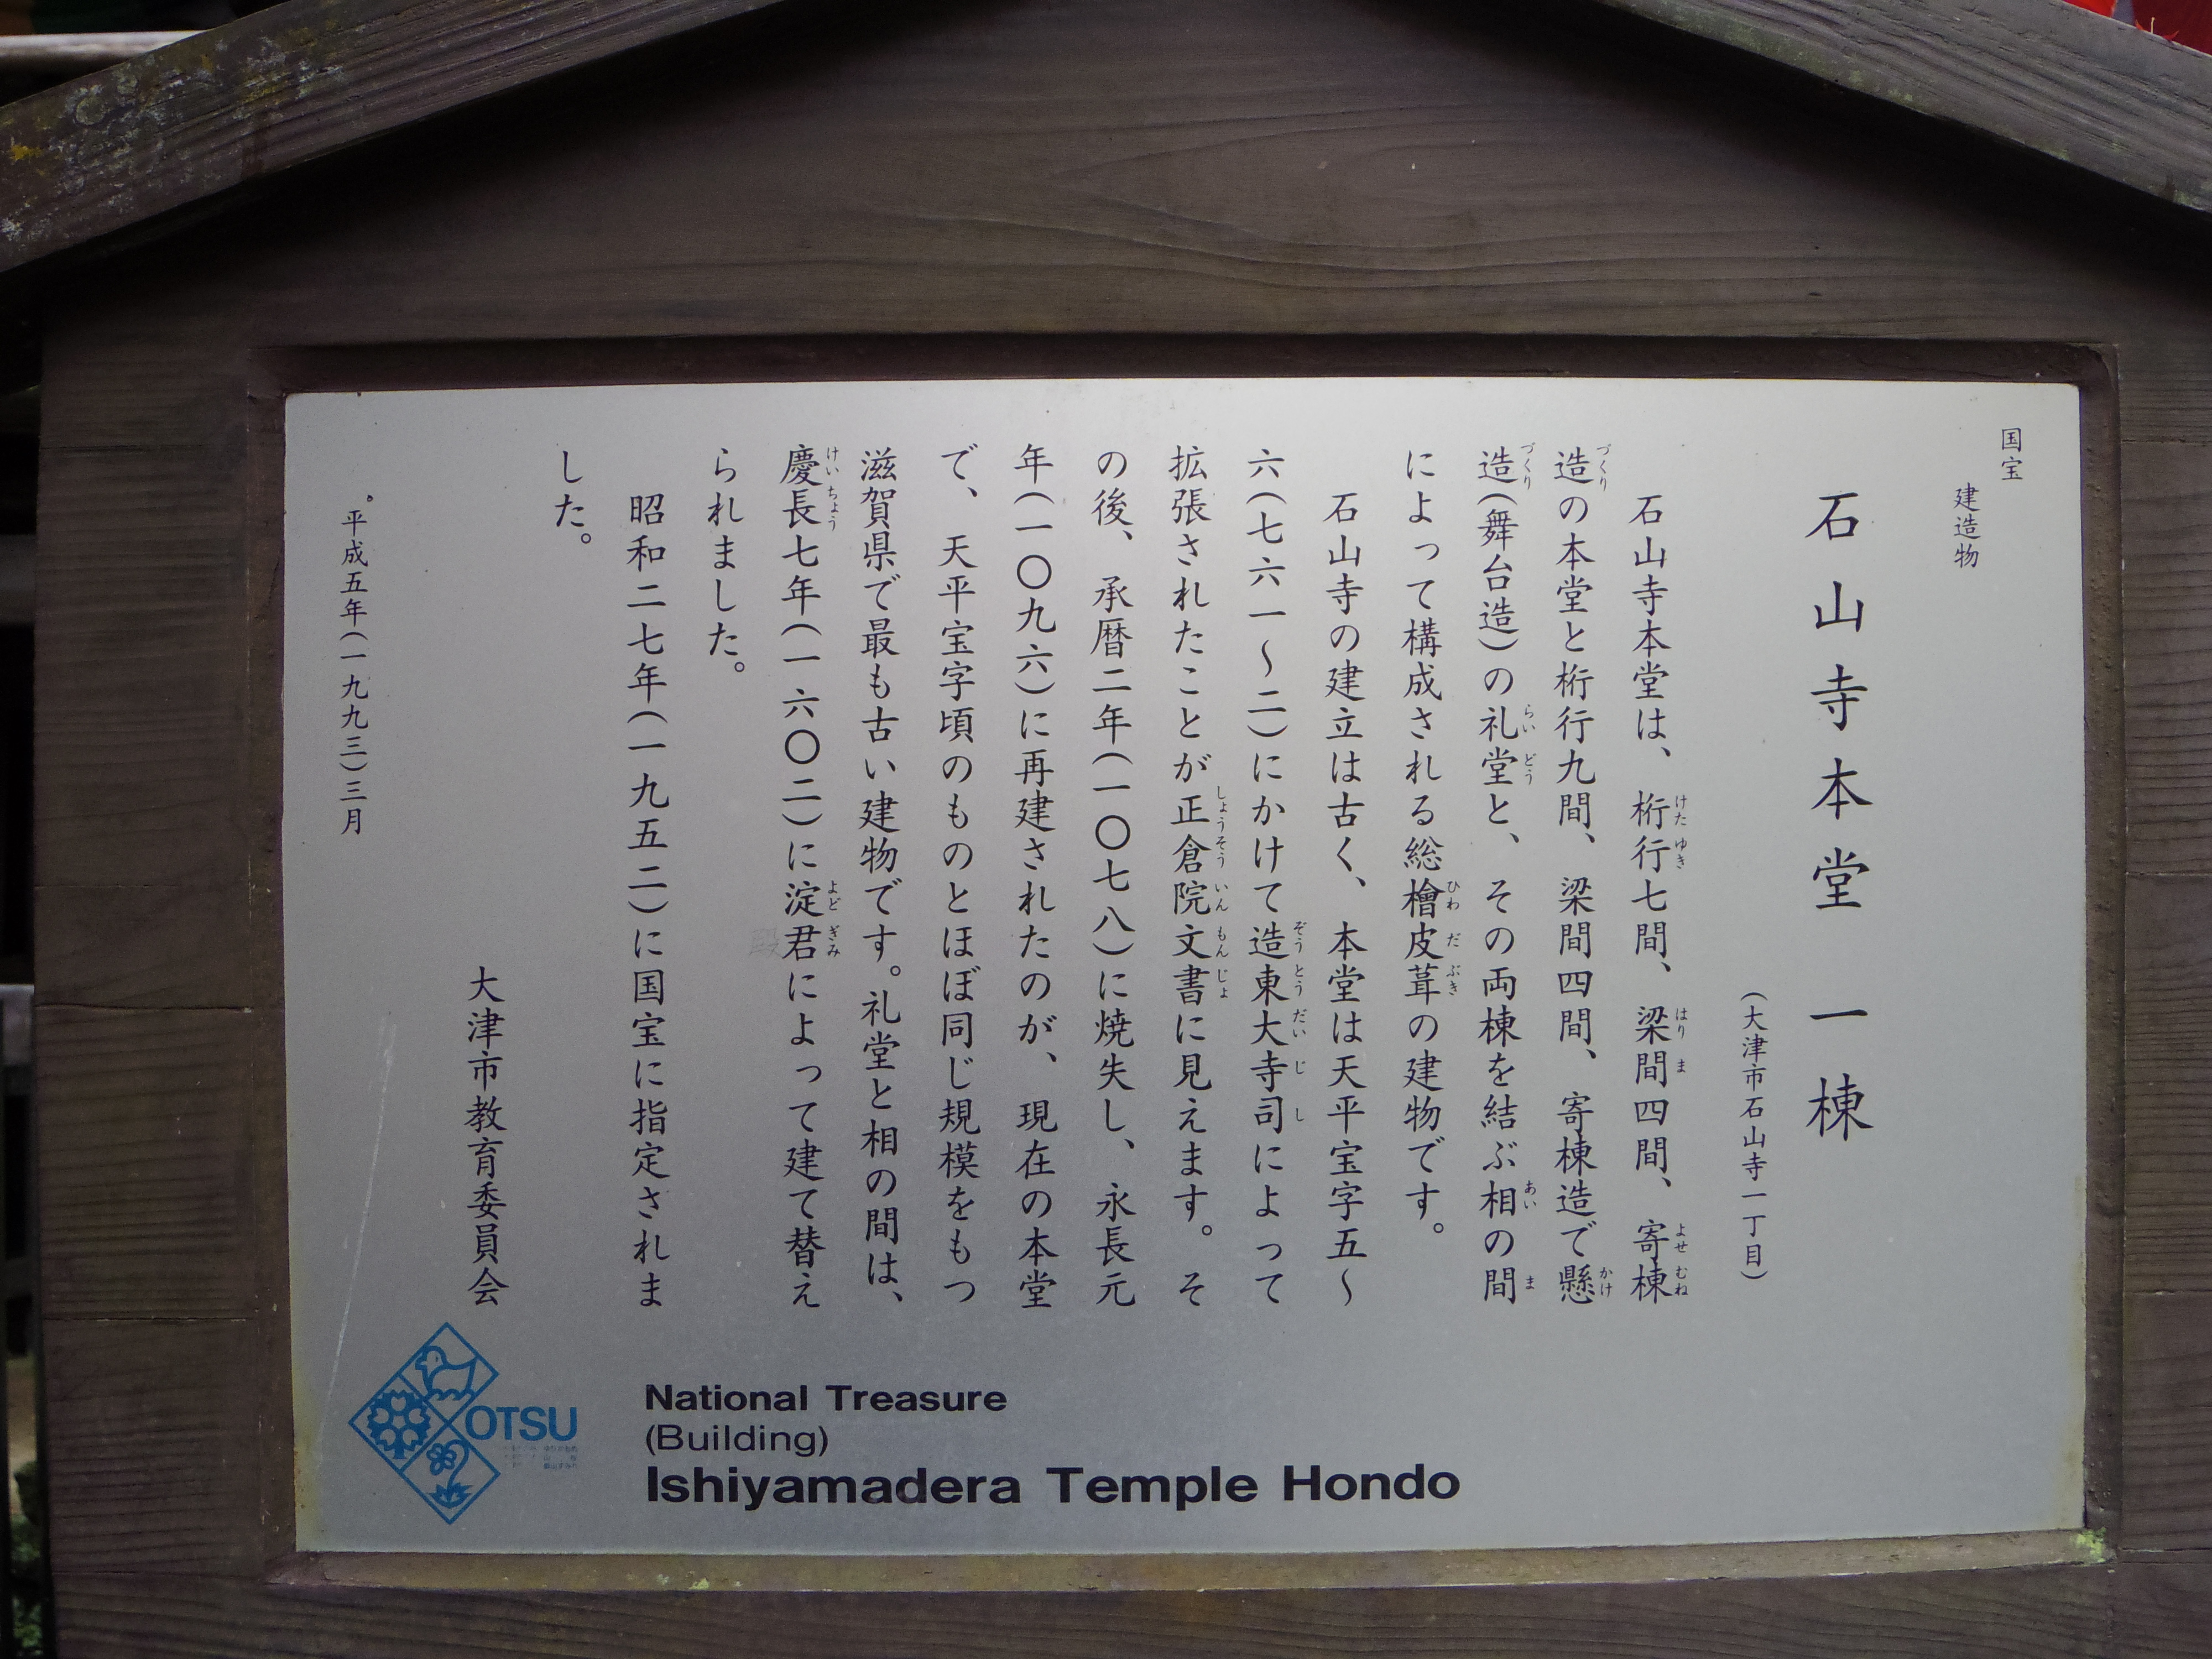 国宝
建造物
石山寺本堂 一棟
（大津市石山寺一丁目）
石山寺本堂は、桁行七間、梁間四間、寄棟
造の本堂と桁行九間、梁間四間、寄棟造で懸
造（舞台造）の礼堂と、その両棟を結ぶ相の間
によって構成される総檜皮葺の建物です。
石山寺の建立は古く、本堂は天平宝字五～
六（七六一～二）にかけて造東大寺司によって
拡張されたことが正倉院文書に見えます。そ
の後、承暦二年（一〇七八）に焼失し、永長元
年（一〇九六）に再建されたのが、現在の本堂
で、天平宝字頃のものとほぼ同じ規模をもつ
滋賀県で最も古い建物です。礼堂と相の間は、
慶長七年（一六〇二）に淀君によって建て替え
られました。
昭和二七年（一九五二）に国宝に指定されま
した。
大津市教育委員会
平成五年（一九九三）三月
National Treasure
(Building)
Ishiyamadera Temple Hondo
OTSU